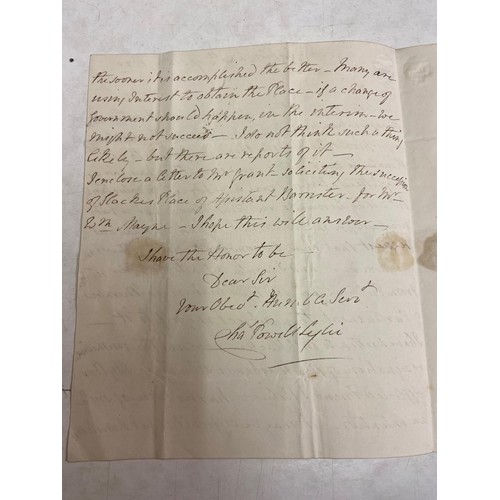 the sooner it is accomplished the better - Many are
using Interest to obtain the Place - if a change of
Government should happen, in the interim - we
might not succeed - I do not think such a thing
likely - but there are reports of it -
I enclose a letter to Mr Grant soliciting the succession
of Slackes Place of Assistant Barrister - for Mr
Mayne - I hope this will answer -
I have the Honor to be -
Dear Sir
Your Obedt. Humble Servt
Chas Powell Leslie